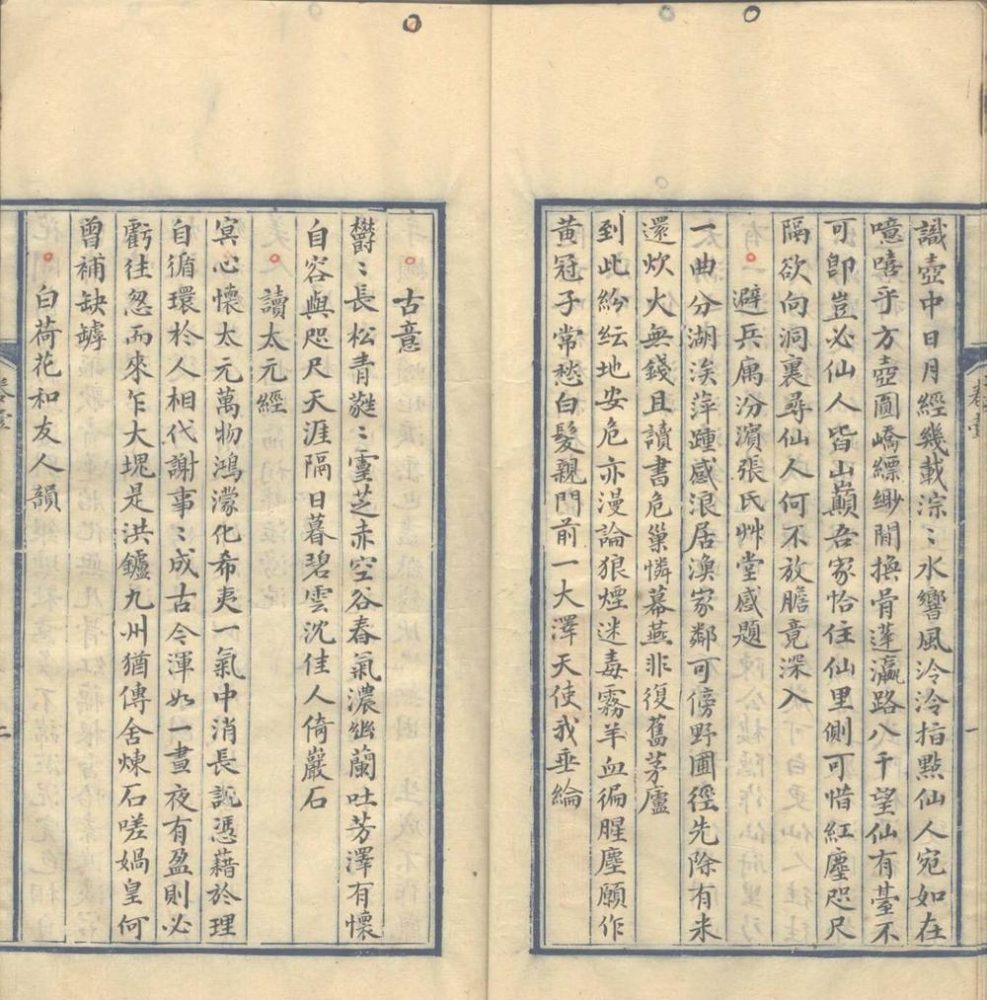 識壺中日月經幾載淙〻水響風泠泠指點仙人宛如在
噫嘻乎方壺圓嶠縹緲間換骨蓬瀛路八千望仙有臺不
可卽豈必仙人皆山巔吾家恰住仙里側可惜紅塵咫尺
隔欲向洞裏尋仙人何不放膽竟深入
避兵寓汾濱張氏艸堂感題
一曲分湖涘萍踵感浪居漁家鄰可傍野圃徑先除有米
還炊火無錢且讀書危巢憐幕燕非復舊茅廬
到此紛紜地安危亦漫論狼煙迷毒霧羊血徧腥塵願作
黃冠子常愁白髮親門前一大澤天使我垂綸
古意
欝〻長松青蕤〻靈芝赤空谷春氣濃幽蘭吐芳澤有懷
自容與咫尺天涯隔日暮碧雲沈佳人倚巖石
讀太元經
冥心懷太元萬物鴻濛化希夷一氣中消長說憑藉於理
自循環於人相代謝事〻成古今渾如一晝夜有盈則必
虧往忽而來乍大塊是洪鑪九州猶傳舍煉石嗟媧皇何
曾補缺罅
白荷花和友人韻
卷壹